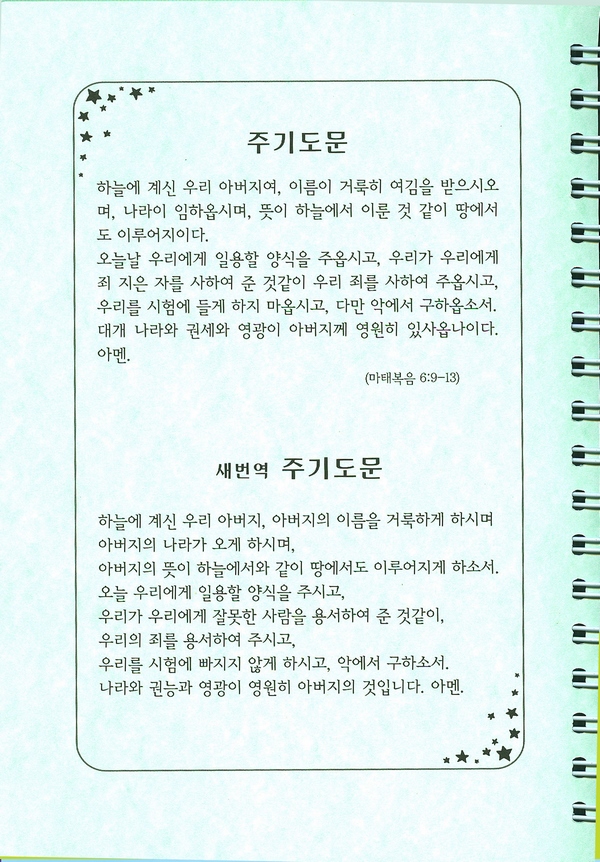 주기도문
하늘에 계신 우리 아버지여, 이름이 거룩히 여김을 받으시오
며, 나라이 임하옵시며, 뜻이 하늘에서 이룬 것 같이 땅에서
도 이루어지이다.
오늘날 우리에게 일용할 양식을 주옵시고, 우리가 우리에게
죄 지은 자를 사하여 준 것같이 우리 죄를 사하여 주옵시고,
우리를 시험에 들게 하지 마옵시고, 다만 악에서 구하옵소서.
대개 나라와 권세와 영광이 아버지께 영원히 있사옵나이다.
아멘.
(마태복음 6:9-13)
새번역 주기도문
하늘에 계신 우리 아버지, 아버지의 이름을 거룩하게 하시며
아버지의 나라가 오게 하시며,
아버지의 뜻이 하늘에서와 같이 땅에서도 이루어지게 하소서.
오늘 우리에게 일용할 양식을 주시고,
우리가 우리에게 잘못한 사람을 용서하여 준 것같이,
우리의 죄를 용서하여 주시고,
우리를 시험에 빠지지 않게 하시고, 악에서 구하소서.
나라와 권능과 영광이 영원히 아버지의 것입니다. 아멘.